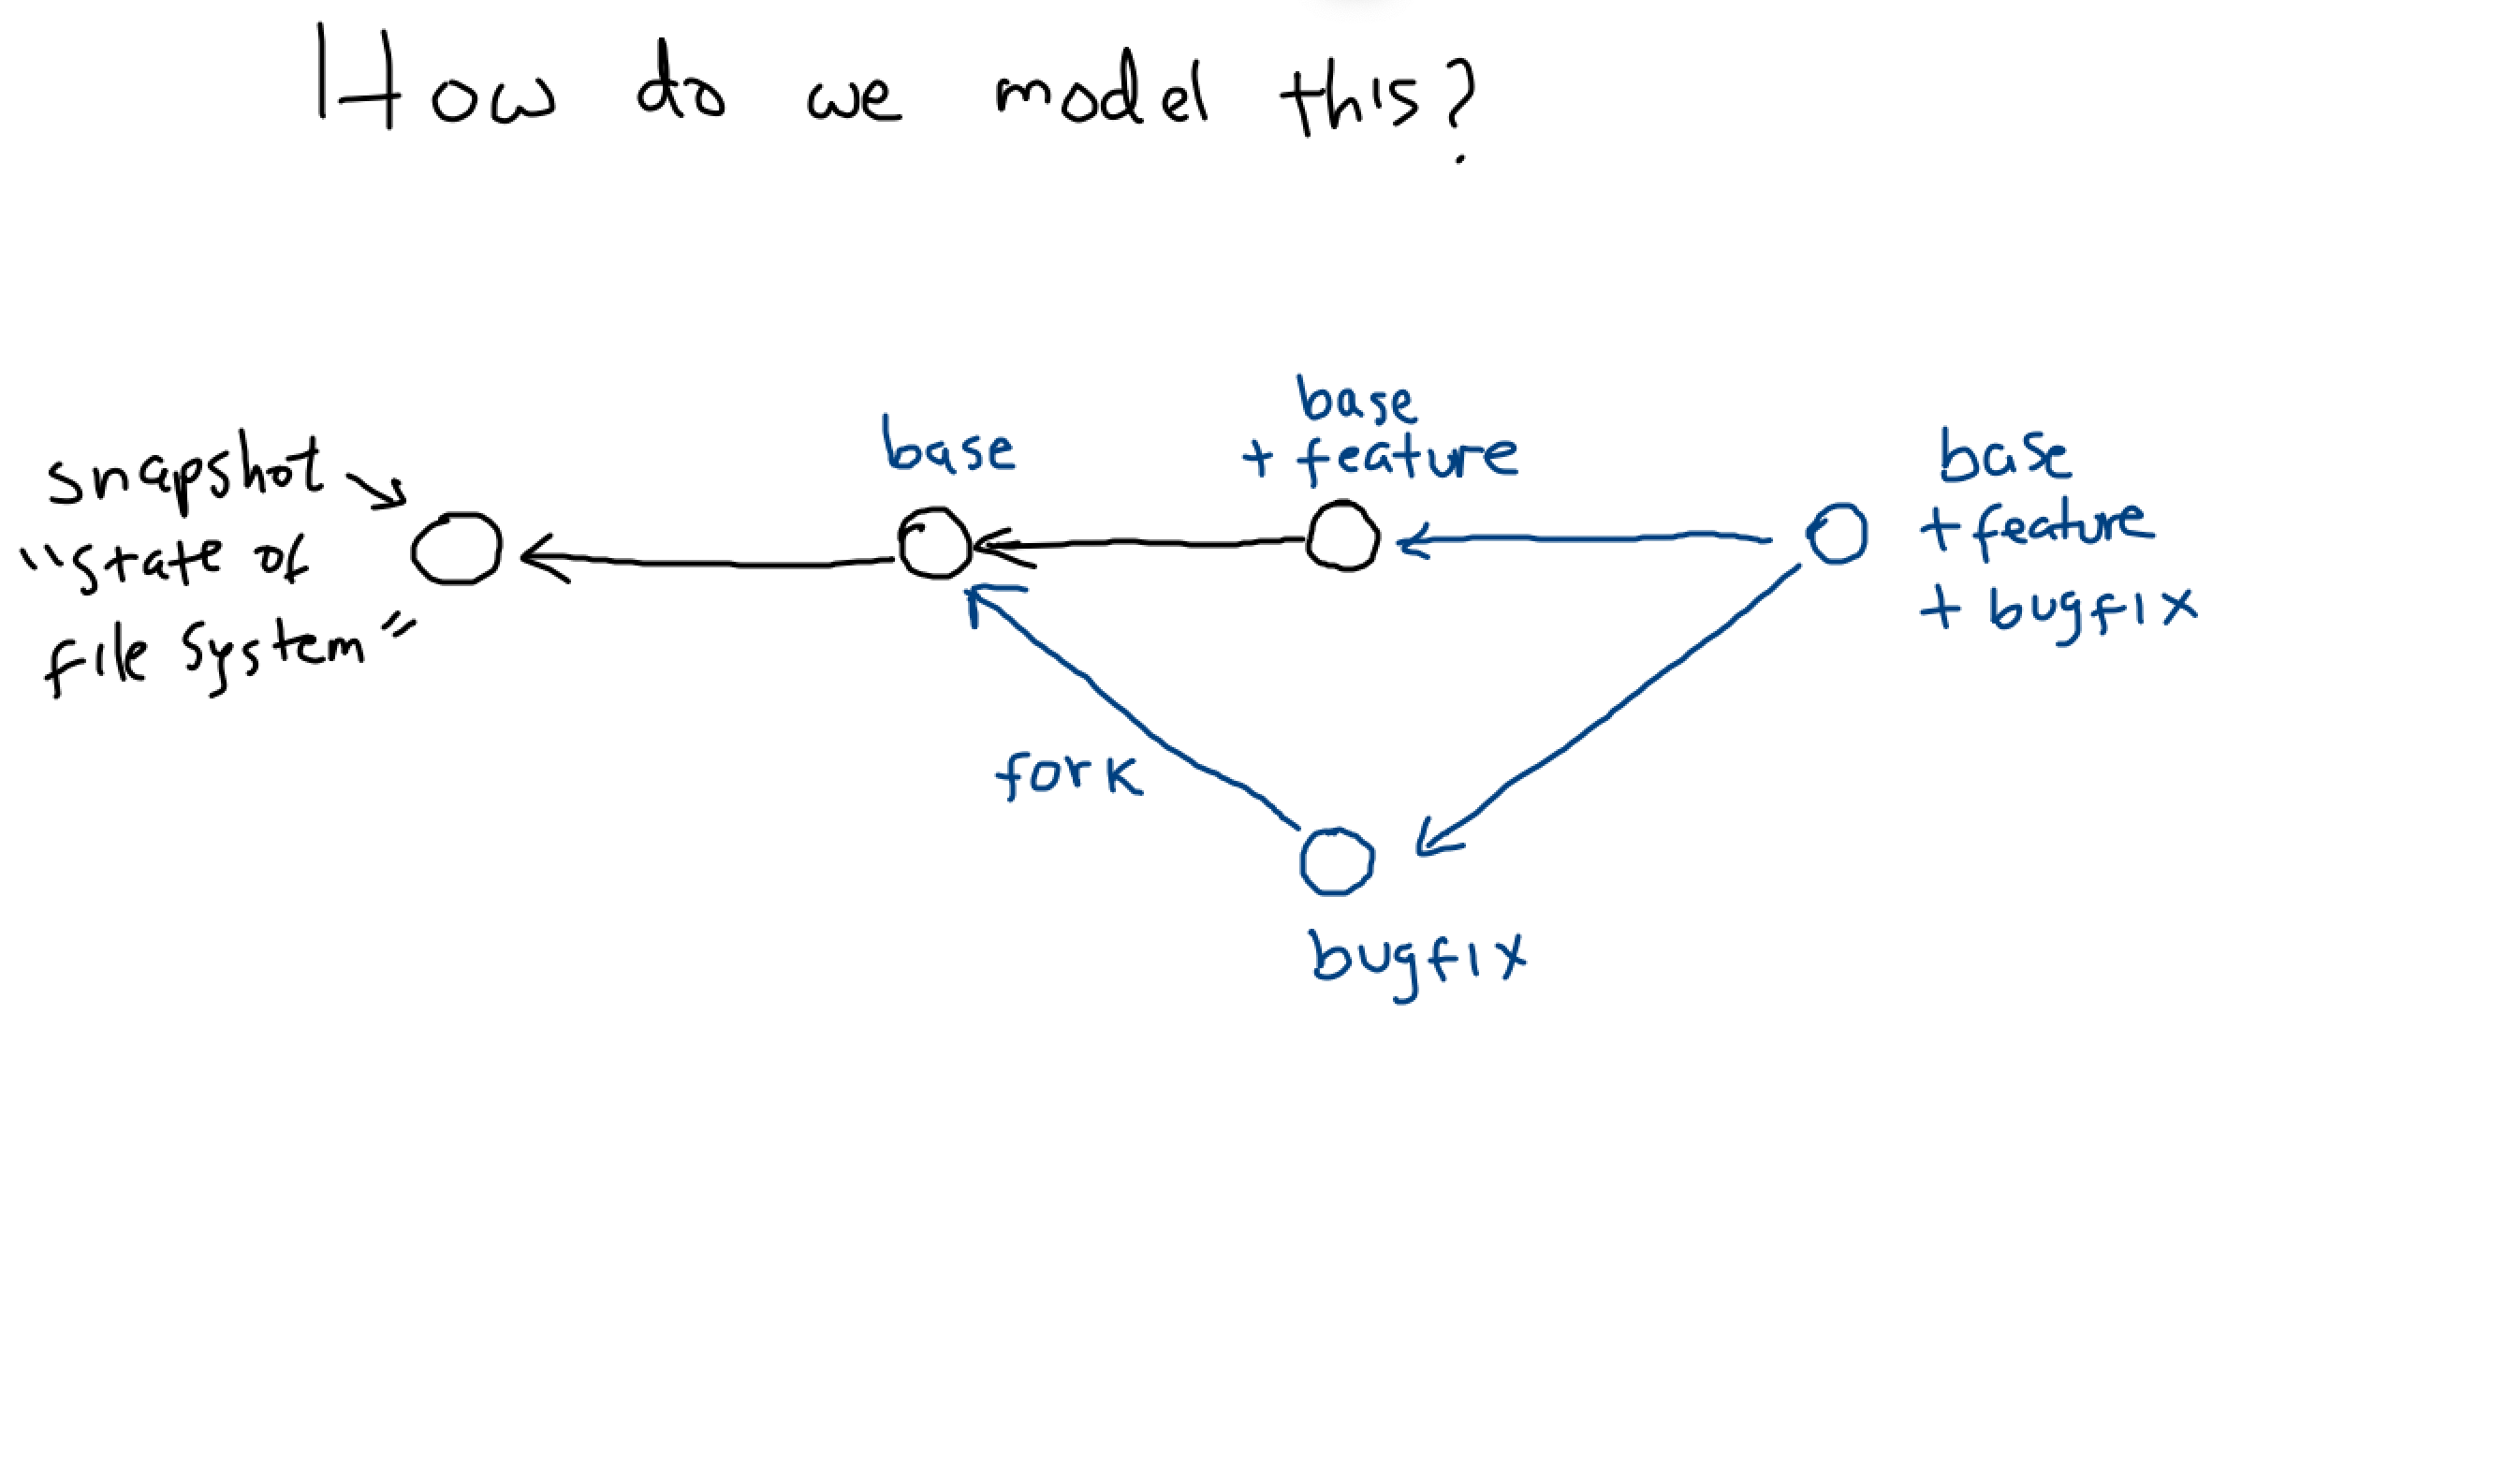 How do we model this?
snapshot
"state of
file system"
base
base
+ feature
base
+ feature
+ bugfix
fork
bugfix